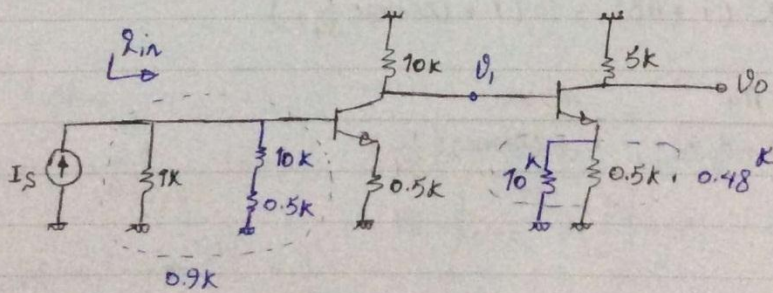 Rin
10K
5K
v1
vo
Is
1K
10K
0.5K
0.5K
10K
0.5K
0.48K
0.9K